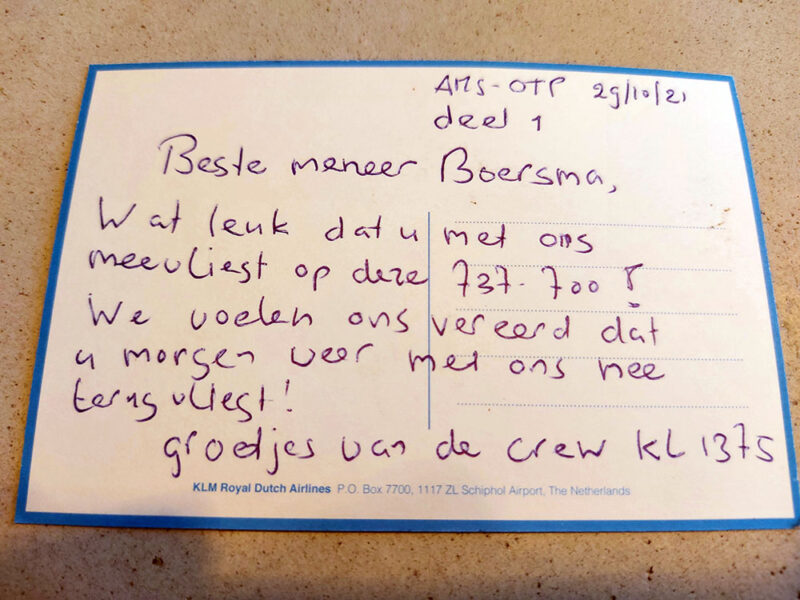 AMS-OTP 29/10/21
deel 1
Beste meneer Boersma,
Wat leuk dat u met ons
meevliegt op deze 737-700!
We voelen ons vereerd dat
u morgen weer met ons mee
terugvliegt!
groetjes van de crew KL1375
KLM Royal Dutch Airlines P.O. Box 7700, 1117 ZL Schiphol Airport, The Netherlands